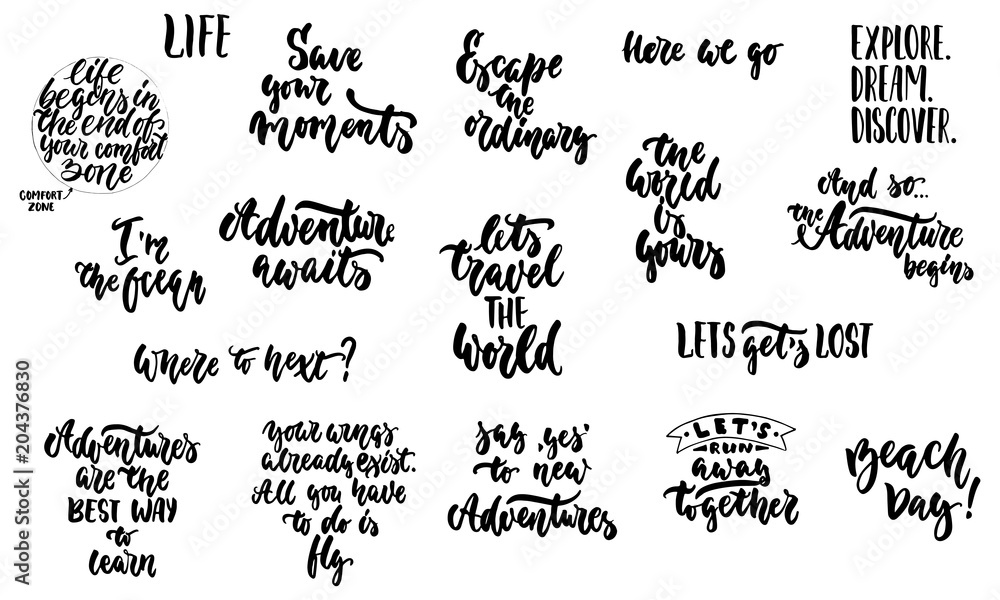 LIFE
life
begins in
the end of
your comfort
zone
COMFORT
ZONE
Save
your
moments
Escape
the
ordinary
Here we go
EXPLORE.
DREAM.
DISCOVER.
I'm
the Ocean
Adventure
awaits
lets
travel
THE
world
the
world
is
yours
And so...
the Adventure
begins
where to next?
LETS get's LOST
Adventures
are the
BEST WAY
to
learn
your wings
already exist.
All you have
to do is
fly
say ,yes'
to new
Adventures
LET'S
RUN
away
together
Beach
Day!
Adobe Stock | #204376830
Adobe Stock
Adobe Stock
Adobe Stock